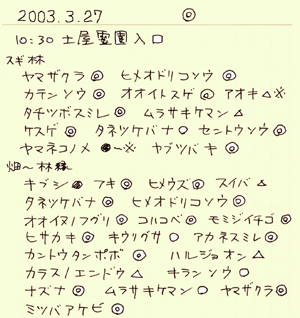 2003.3.27 ◎
10:30 土屋霊園入口
スギ林
ヤマザクラ ◎ ヒメオドリコソウ ◎
カテンソウ ◎ オオイトスゲ ◎ アオキ △※
タチツボスミレ ◎ ムラサキケマン △
ケスゲ ◎ タネツケバナ ○ セントウソウ ◎
ヤマネコノメ ●~※ ヤブツバキ ◎
畑~林縁
キブシ ● フキ ◎ ヒメウズ ◎ スイバ △
タネツケバナ ◎ ヒメオドリコソウ ◎
オオイヌノフグリ ◎ コハコベ ◎ モミジイチゴ ◎
ヒサカキ ◎ キウリグサ ○ アカネスミレ ◎
カントウタンポポ ◎ ハルジョオン △
カラスノエンドウ △ キランソウ ○
ナズナ ○ ムラサキケマン ○ ヤマザクラ ◎
ミツバアケビ ◎